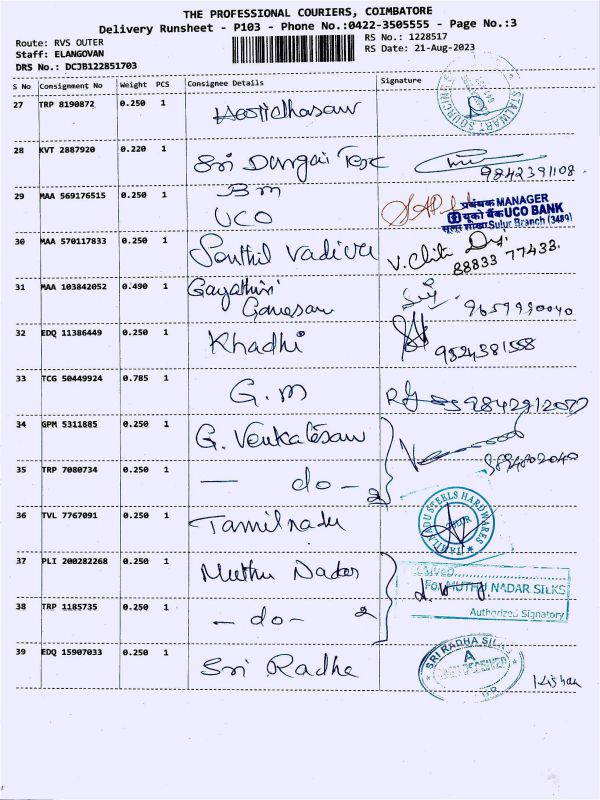 THE PROFESSIONAL COURIERS, COIMBATORE
Delivery Runsheet - P103 - Phone No.:0422-3505555 - Page No.:3
Route: RVS OUTER RS No.: 1228517
Staff: ELANGOVAN RS Date: 21-Aug-2023
DRS No.: DCJB122851703
S No Consignment No Weight PCS Consignee Details Signature
27 TRP 8190872 0.250 1
STALWART SOURCING
28 KVT 2887920 0.220 1 Sri Durgai Tex 9842391108
29 MAA 569176515 0.250 1 BM
UCO
प्रबंधक MANAGER
यूको बैंक UCO BANK
सूलूर शाखा Sulur Branch (3489)
30 MAA 570117833 0.250 1 Senthil Vadivel V. Chitra 88833 77438.
31 MAA 103842052 0.490 1 Gayathiri
Ganesan 9659990040
32 EDQ 11386449 0.250 1 Khadhi 9524381558
33 TCG 50449924 0.785 1 G.M
34 GPM 5311885 0.250 1 G. Venkatesan
35 TRP 7080734 0.250 1 — do — 2
36 TVL 7767091 0.250 1 Tamilnadu
TAMILNADU STEELS HARDWARES
SULUR
37 PLI 200282268 0.250 1 Muthu Nadar
RECEIVED
For MUTHU NADAR SILKS
Authorized Signatory
38 TRP 1185735 0.250 1 — do — 2
39 EDQ 15907033 0.250 1 Sri Radhe
SRI RADHA SILKS
A
RECEIVED